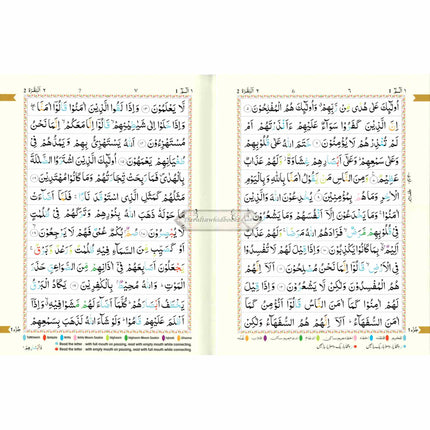 اُولٰٓئِكَ عَلٰى هُدًى مِّنْ رَّبِّهِمْ ۗ وَاُولٰٓئِكَ هُمُ الْمُفْلِحُوْنَ
اِنَّ الَّذِيْنَ كَفَرُوْا سَوَآءٌ عَلَيْهِمْ ءَاَنْذَرْتَهُمْ اَمْ
لَمْ تُنْذِرْهُمْ لَا يُؤْمِنُوْنَ خَتَمَ اللّٰهُ عَلٰى قُلُوْبِهِمْ
وَعَلٰى سَمْعِهِمْ وَعَلٰٓى اَبْصَارِهِمْ غِشَاوَةٌ وَّلَهُمْ عَذَابٌ
عَظِيْمٌ وَمِنَ النَّاسِ مَنْ يَّقُوْلُ اٰمَنَّا بِاللّٰهِ وَبِالْيَوْمِ
الْاٰخِرِ وَمَا هُمْ بِمُؤْمِنِيْنَ يُخٰدِعُوْنَ اللّٰهَ وَالَّذِيْنَ
اٰمَنُوْا وَمَا يَخْدَعُوْنَ اِلَّآ اَنْفُسَهُمْ وَمَا يَشْعُرُوْنَ
فِيْ قُلُوْبِهِمْ مَّرَضٌ فَزَادَهُمُ اللّٰهُ مَرَضًا وَلَهُمْ عَذَابٌ
اَلِيْمٌۢ بِمَا كَانُوْا يَكْذِبُوْنَ وَاِذَا قِيْلَ لَهُمْ لَا تُفْسِدُوْا
فِي الْاَرْضِ قَالُوْٓا اِنَّمَا نَحْنُ مُصْلِحُوْنَ اَلَآ اِنَّهُمْ
هُمُ الْمُفْسِدُوْنَ وَلٰكِنْ لَّا يَشْعُرُوْنَ وَاِذَا قِيْلَ
لَهُمْ اٰمِنُوْا كَمَآ اٰمَنَ النَّاسُ قَالُوْٓا اَنُؤْمِنُ كَمَآ
اٰمَنَ السُّفَهَآءُ اَلَآ اِنَّهُمْ هُمُ السُّفَهَآءُ وَلٰكِنْ
لَّا يَعْلَمُوْنَ وَاِذَا لَقُوا الَّذِيْنَ اٰمَنُوْا قَالُوْٓا اٰمَنَّا
وَاِذَا خَلَوْا اِلٰى شَيٰطِيْنِهِمْ قَالُوْٓا اِنَّا مَعَكُمْ اِنَّمَا نَحْنُ
مُسْتَهْزِءُوْنَ اَللّٰهُ يَسْتَهْزِئُ بِهِمْ وَيَمُدُّهُمْ فِيْ
طُغْيَانِهِمْ يَعْمَهُوْنَ اُولٰٓئِكَ الَّذِيْنَ اشْتَرَوُا الضَّلٰلَةَ
بِالْهُدٰى فَمَا رَبِحَتْ تِّجَارَتُهُمْ وَمَا كَانُوْا مُهْتَدِيْنَ
مَثَلُهُمْ كَمَثَلِ الَّذِي اسْتَوْقَدَ نَارًا فَلَمَّآ اَضَآءَتْ
مَا حَوْلَهٗ ذَهَبَ اللّٰهُ بِنُوْرِهِمْ وَتَرَكَهُمْ فِيْ ظُلُمٰتٍ
لَّا يُبْصِرُوْنَ صُمٌّۢ بُكْمٌ عُمْيٌ فَهُمْ لَا يَرْجِعُوْنَ
اَوْ كَصَيِّبٍ مِّنَ السَّمَآءِ فِيْهِ ظُلُمٰتٌ وَّرَعْدٌ وَّبَرْقٌ
يَجْعَلُوْنَ اَصَابِعَهُمْ فِيْٓ اٰذَانِهِمْ مِّنَ الصَّوَاعِقِ حَذَرَ
الْمَوْتِ وَاللّٰهُ مُحِيْطٌۢ بِالْكٰفِرِيْنَ يَكَادُ الْبَرْقُ
يَخْطَفُ اَبْصَارَهُمْ كُلَّمَآ اَضَآءَ لَهُمْ مَّشَوْا فِيْهِ وَاِذَآ
اَظْلَمَ عَلَيْهِمْ قَامُوْا وَلَوْ شَآءَ اللّٰهُ لَذَهَبَ بِسَمْعِهِمْ